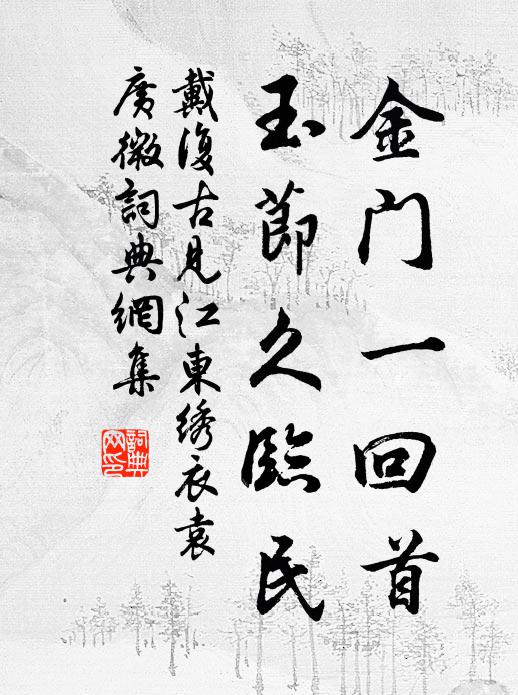 金门一回首
玉節久臨民
戴復古見江東绣衣袁
廣微詞典網集
詞典
网印